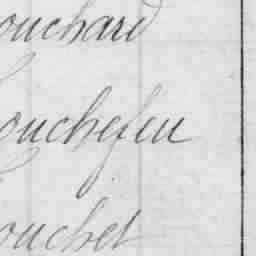 ouchard
ouchefeu
ouchet